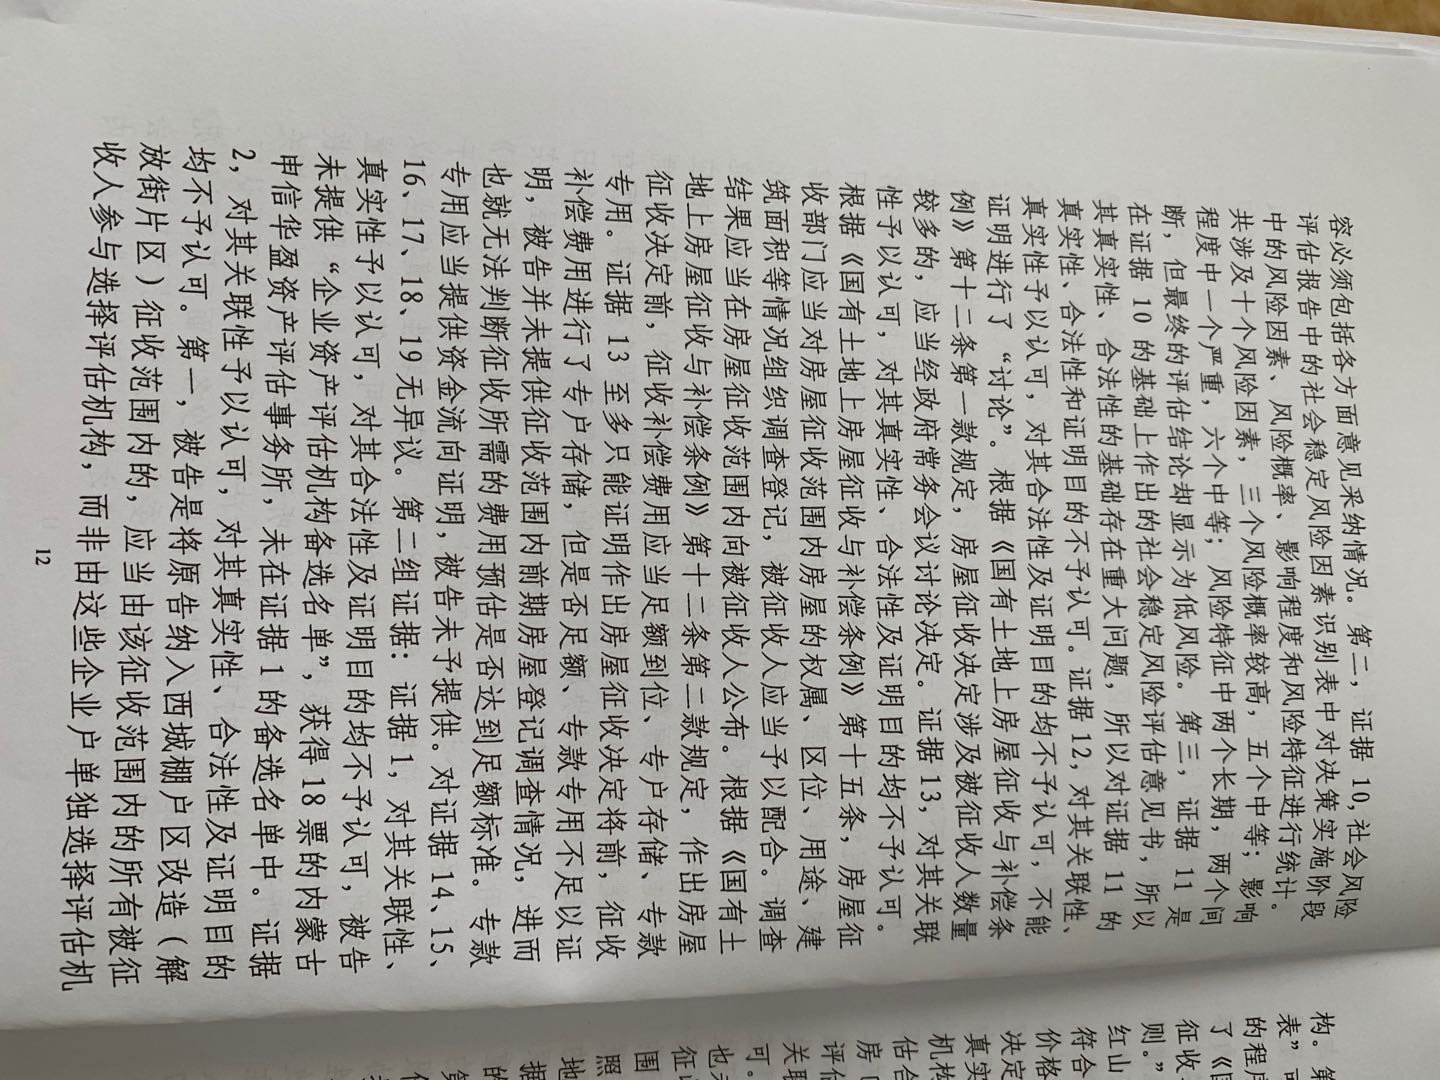 容必须包括各方面意见采纳情况。第二，证据 10，社会风险
评估报告中的社会稳定风险因素识别表中对决策实施阶段
中的风险因素、风险概率、影响程度和风险特征进行统计。
共涉及十个风险因素，三个风险概率较高，五个中等；影响
程度中一个严重，六个中等；风险特征中两个长期，两个间
断，但最终的评估结论却显示为低风险。第三，证据 11 是
在证据 10 的基础上作出的社会稳定风险评估意见书，所以
其真实性、合法性的基础存在重大问题，所以对证据 11 的
真实性、合法性和证明目的不予认可。证据 12，对其关联性、
真实性予以认可，对其合法性及证明目的均不予认可，不能
证明进行了“讨论”。根据《国有土地上房屋征收与补偿条
例》第十二条第一款规定，房屋征收决定涉及被征收人数量
较多的，应当经政府常务会议讨论决定。证据 13，对其关联
性予以认可，对其真实性、合法性及证明目的均不予认可。
根据《国有土地上房屋征收与补偿条例》第十五条，房屋征
收部门应当对房屋征收范围内房屋的权属、区位、用途、建
筑面积等情况组织调查登记，被征收人应当予以配合。调查
结果应当在房屋征收范围内向被征收人公布。根据《国有土
地上房屋征收与补偿条例》第十二条第二款规定，作出房屋
征收决定前，征收补偿费用应当足额到位、专户存储、专款
专用。证据 13 至多只能证明作出房屋征收决定将前，征收
补偿费用进行了专户存储，但是否足额、专款专用不足以证
明，被告并未提供征收范围内前期房屋登记调查情况，进而
也就无法判断征收所需的费用预估是否达到足额标准。专款
专用应当提供资金流向证明，被告未予提供。对证据 14、15、
16、17、18、19 无异议。第二组证据：证据 1，对其关联性、
真实性予以认可，对其合法性及证明目的均不予认可，被告
未提供“企业资产评估机构备选名单”，获得 18 票的内蒙古
申信华盈资产评估事务所，未在证据 1 的备选名单中。证据
2，对其关联性予以认可，对其真实性、合法性及证明目的
均不予认可。第一，被告是将原告纳入西城棚户区改造（解
放街片区）征收范围内的，应当由该征收范围内的所有被征
收人参与选择评估机构，而非由这些企业户单独选择评估机
12
构。第
表”
的程
了《
征收
则。”
红山
符合
价格
决定
真实
机构
估合
房
评估
关联
可。
也
征
围
照
地
据
的